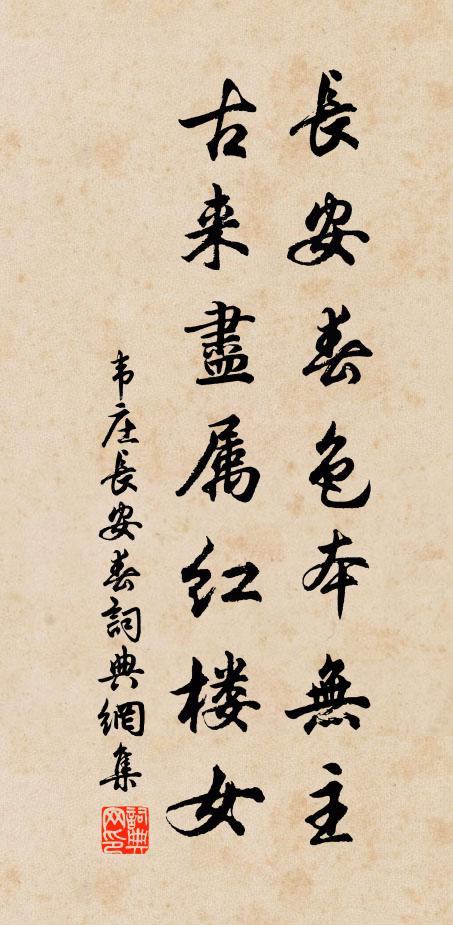 長安春色本無主
古来盡属红楼女
韦庄長安春詞典網集
詞典
网印